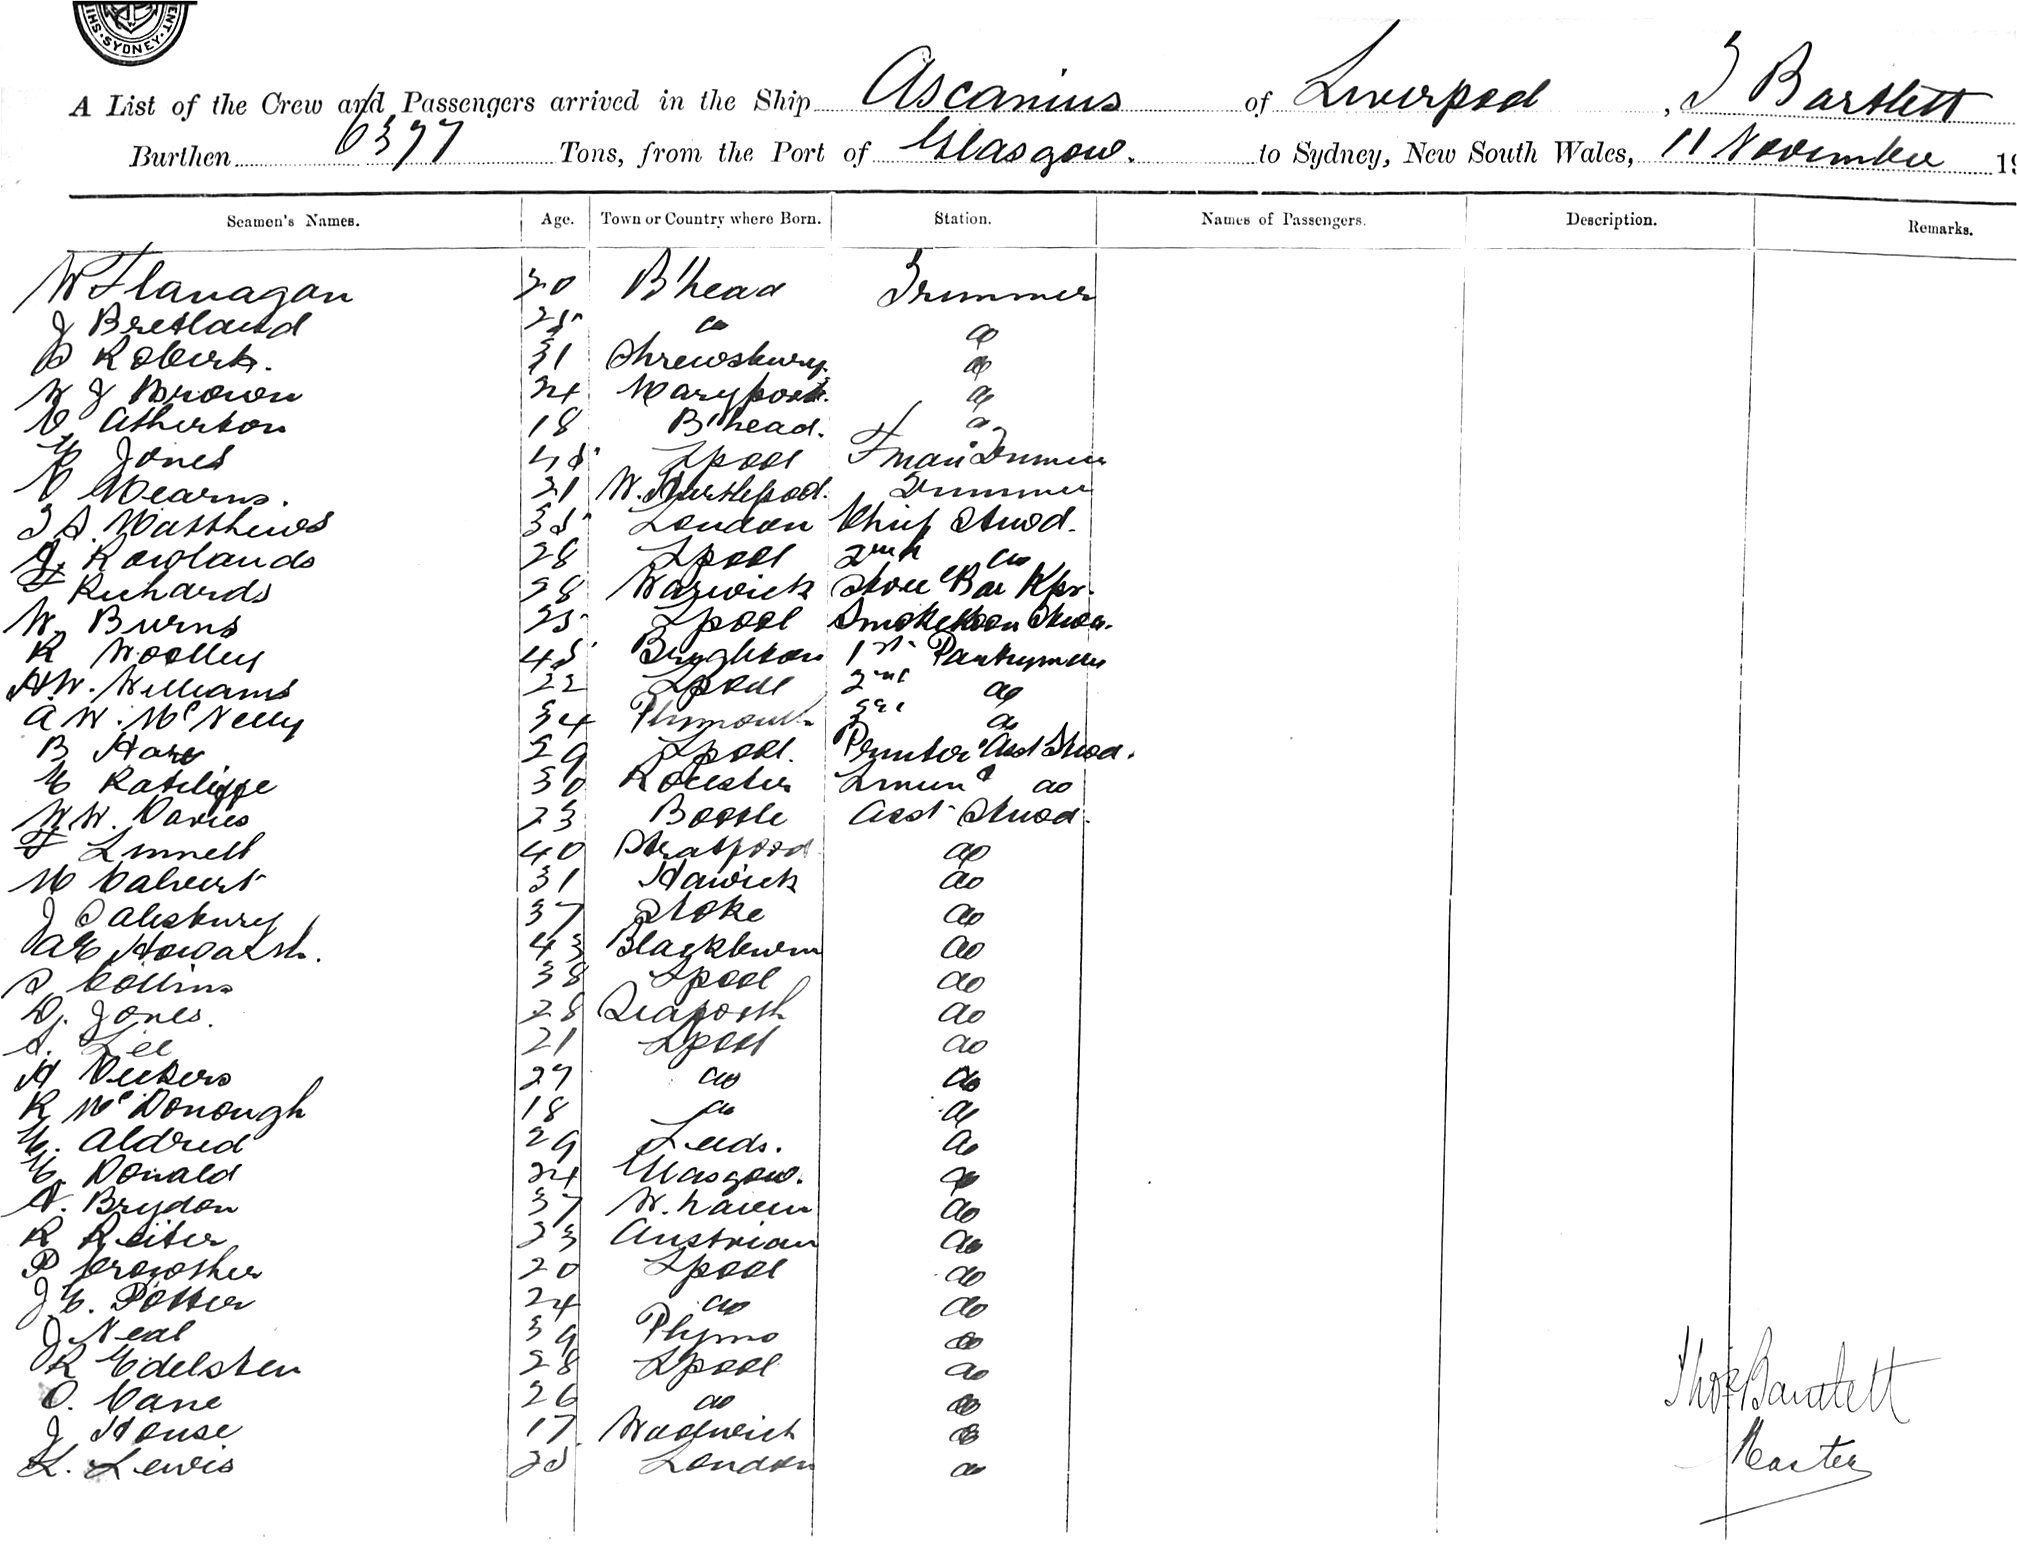 SHI · SYDNEY · ENT
A List of the Crew and Passengers arrived in the Ship Ascanius of Liverpool, T Bartlett
Burthen 6377 Tons, from the Port of Glasgow. to Sydney, New South Wales, 11 November 19
Seamen's Names. Age. Town or Country where Born. Station. Names of Passengers. Description. Remarks.
W Flanagan 20 B'head Trimmer
J Bretland 25 do do
S Roberts. 31 Shrewsbury do
W J Brown 24 Maryport. do
Atherton 18 B'head. do
E Jones 45 Lpool F'man & Trimmer
Mearns. 21 W. Hartlepool. Trimmer
T A. Matthews 35 London Chief Stwd.
J. Rowlands 28 Lpool 2nd do
F Richards 28 Warwick Store & Bar Kpr.
W. Burns 25 Lpool Smoke Room Stwd.
R Woolley 45 Brighton 1st Pantryman
H.W. Williams 22 Lpool 2nd do
A W. McNelly 34 Plymouth 3rd do
B Hare 29 Lpool. Printer & Asst Stwd.
E Ratcliffe 30 Rocester Linen & do
W.W. Davies 23 Bootle Asst Stwd.
F Linnell 40 Stratford do
M Calvert 31 Hawick do
J Salisbury 37 Stoke do
A E Howarth. 43 Blackburn do
S Collins 38 Lpool do
D. Jones. 28 Seaforth do
Lee 21 Lpool do
H Vickers 27 do do
R McDonough 18 do do
E. Aldred 29 Leeds. do
E. Donald 24 Glasgow. do
A. Brydon 37 W. haven do
R Reiter 33 Austrian do
P Crowther 20 Lpool do
J E. Potter 24 do do
J Neal 39 Plymo do
R Edelsten 28 Lpool do
O. Cane 26 do do
J House 17 Woolwich do
L. Lewis 25 London do
Thos Bartlett
Master